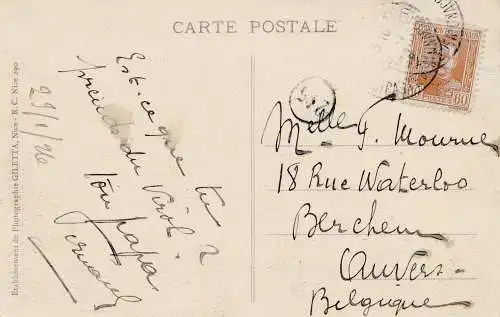 CARTE POSTALE
Etablissement de Photographie GILETTA, Nice - R. C. Nice 290
29/1/26
Est-ce que tu
prends du Virol ?
ton papa
Fernand
Melle F. Mourue
18 Rue Waterloo
Berchem
Anvers
Belgique
60